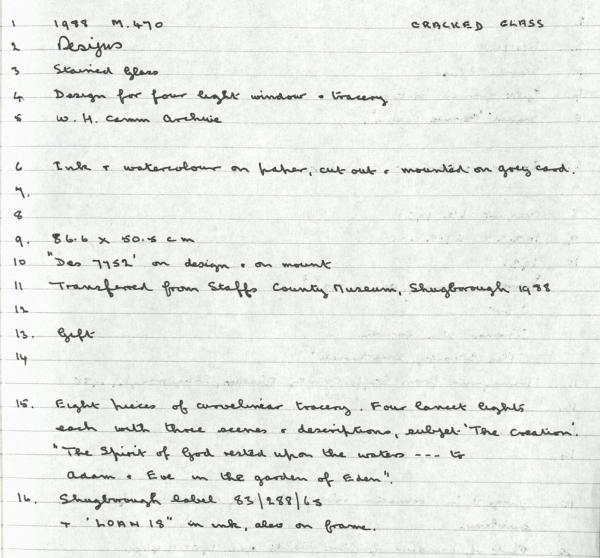 1 1988 M.470 CRACKED GLASS
2 Designs
3 Stained Glass
4 Design for four light window + tracery
5 W. H. Camm Archive
6 Ink + watercolour on paper, cut out + mounted on grey card.
7.
8
9. 86.6 x 50.5 cm
10 "Des 7752' on design + on mount
11 Transferred from Staffs County Museum, Shugborough 1988
12
13. Gift
14
15. Eight pieces of curvelinear tracery. Four lancet lights
each with three scenes + descriptions, subjet 'The Creation'.
"The Spirit of God rested upon the waters --- to
Adam + Eve in the garden of Eden".
16. Shugborough label 83/288/65
+ 'LOAN 18" in ink, also on frame.